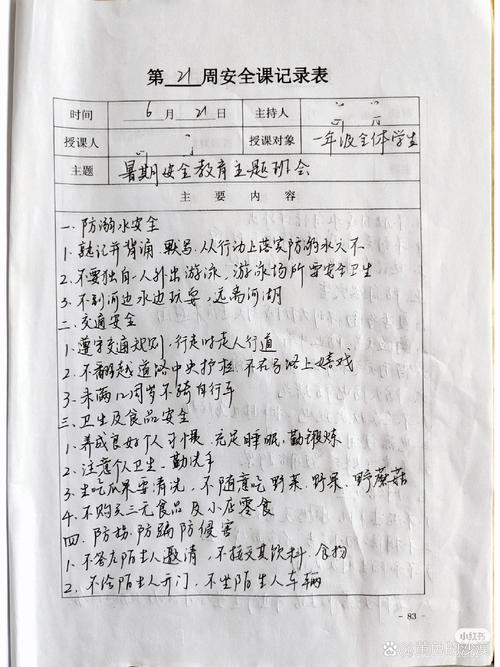 第 21 周安全课记录表
时间 6 月 21 日 主持人
授课人 授课对象 一年级全体学生
主题 暑期安全教育主题班会
主 要 内 容
一.防溺水安全
1.熟记并背诵、默写、从行动上落实防溺水六不
2.不要独自一人外出游泳，游泳场所要安全卫生
3.不到河边水边玩耍，远离河湖
二.交通安全
1.遵守交通规则，行走时走人行道
2.不翻越道路中央护栏，不在马路上嬉戏
3.未满12周岁不骑自行车
三.卫生及食品安全
1.养成良好个人习惯，充足睡眠，勤锻炼
2.注意个人卫生，勤洗手
3.生吃瓜果要清洗，不随意吃野菜、野果、野蘑菇
4.不购买三无食品及小店零食
四.防拐、防骗、防侵害
1.不答应陌生人邀请，不接受其饮料、食物
2.不给陌生人开门，不坐陌生人车辆
- 83 -
小红书